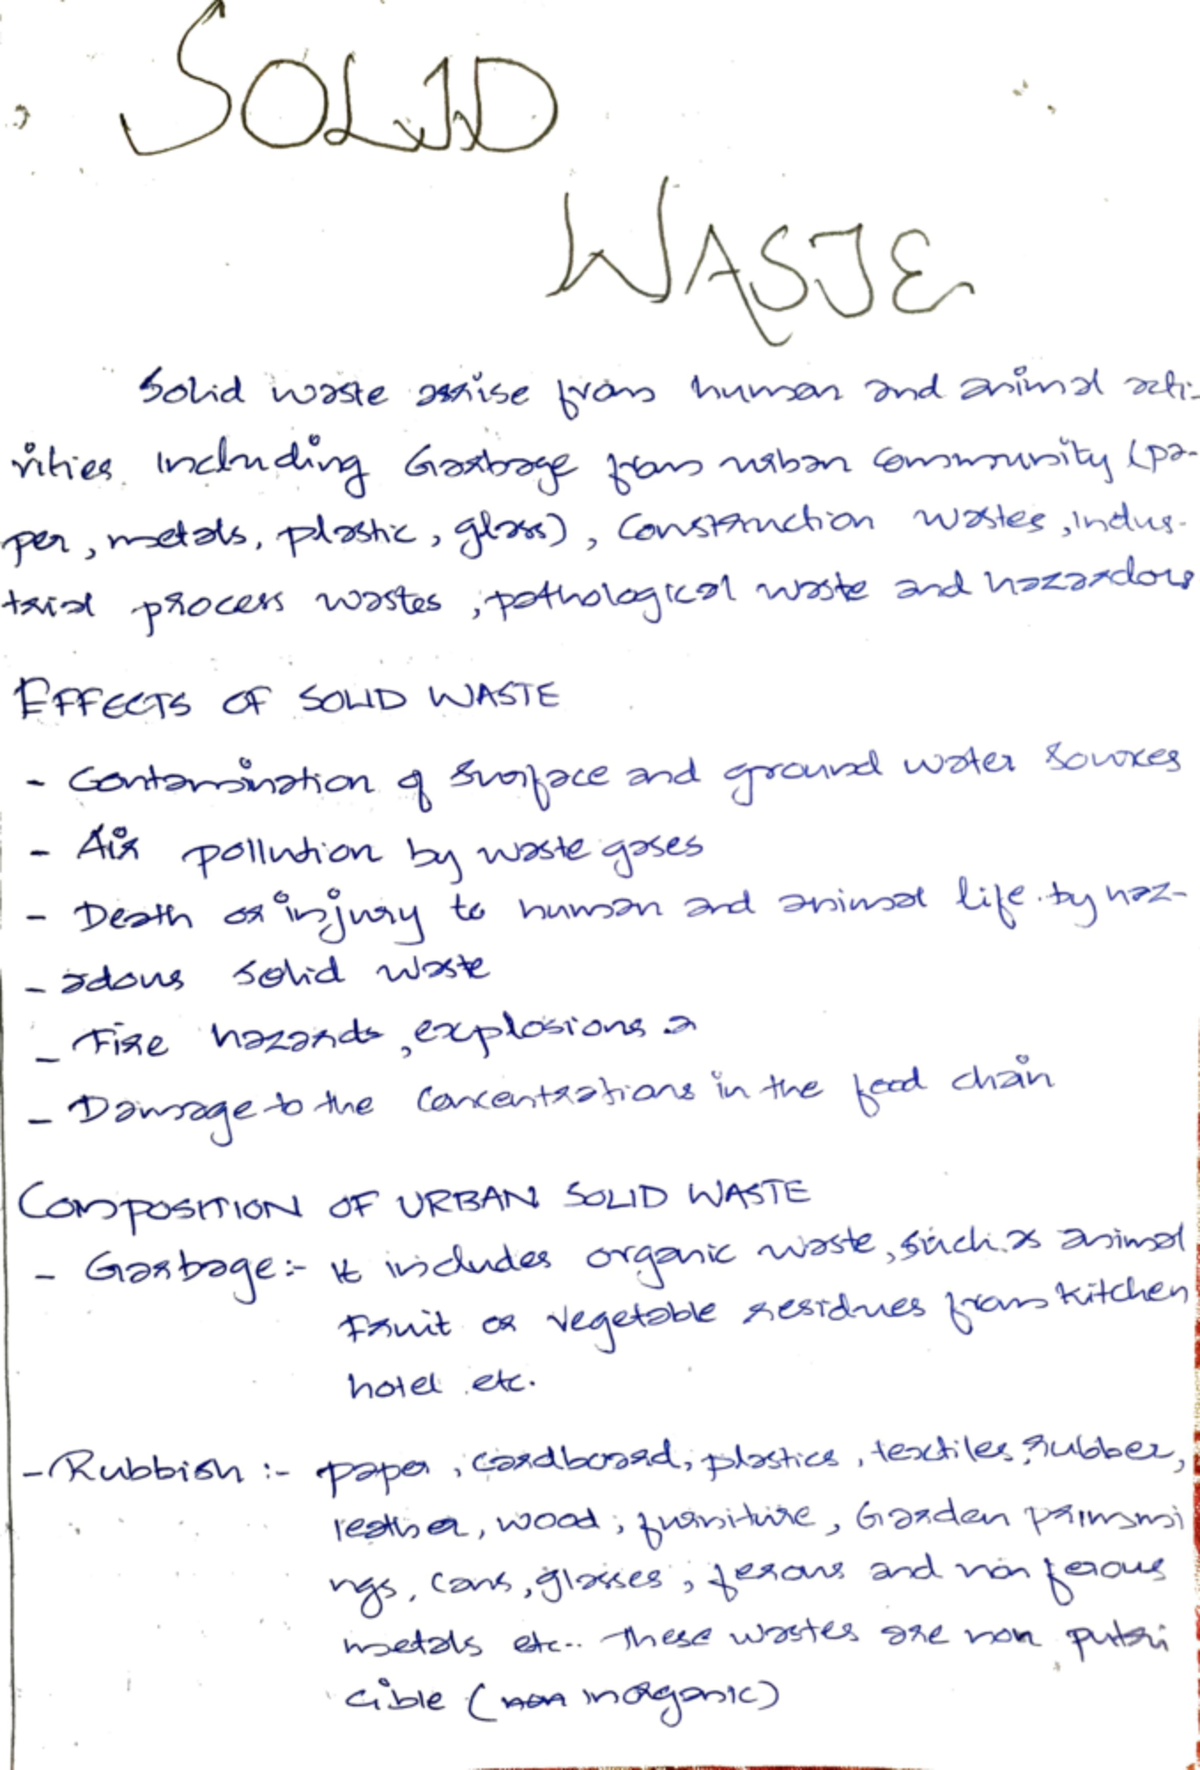 SOLID
WASTE
Solid waste arise from human and animal acti-
vities including Garbage from urban community (pa-
per, metals, plastic, glass), Construction wastes, indus-
trial process wastes, pathological waste and hazardous
EFFECTS OF SOLID WASTE
- Contamination of surface and ground water sources
- Air pollution by waste gases
- Death or injury to human and animal life by haz-
- adous solid waste
- Fire hazards, explosions a
- Damage to the concentrations in the food chain
COMPOSITION OF URBAN SOLID WASTE
- Garbage:- It includes organic waste, such as animal
Fruit or vegetable residues from kitchen
hotel etc.
- Rubbish :- paper, cardboard, plastics, textiles, rubber,
leather, wood, furniture, Garden
ngs, cans, glasses, ferous and non ferous
metals etc.. These wastes are non putri
cible (non inorganic)